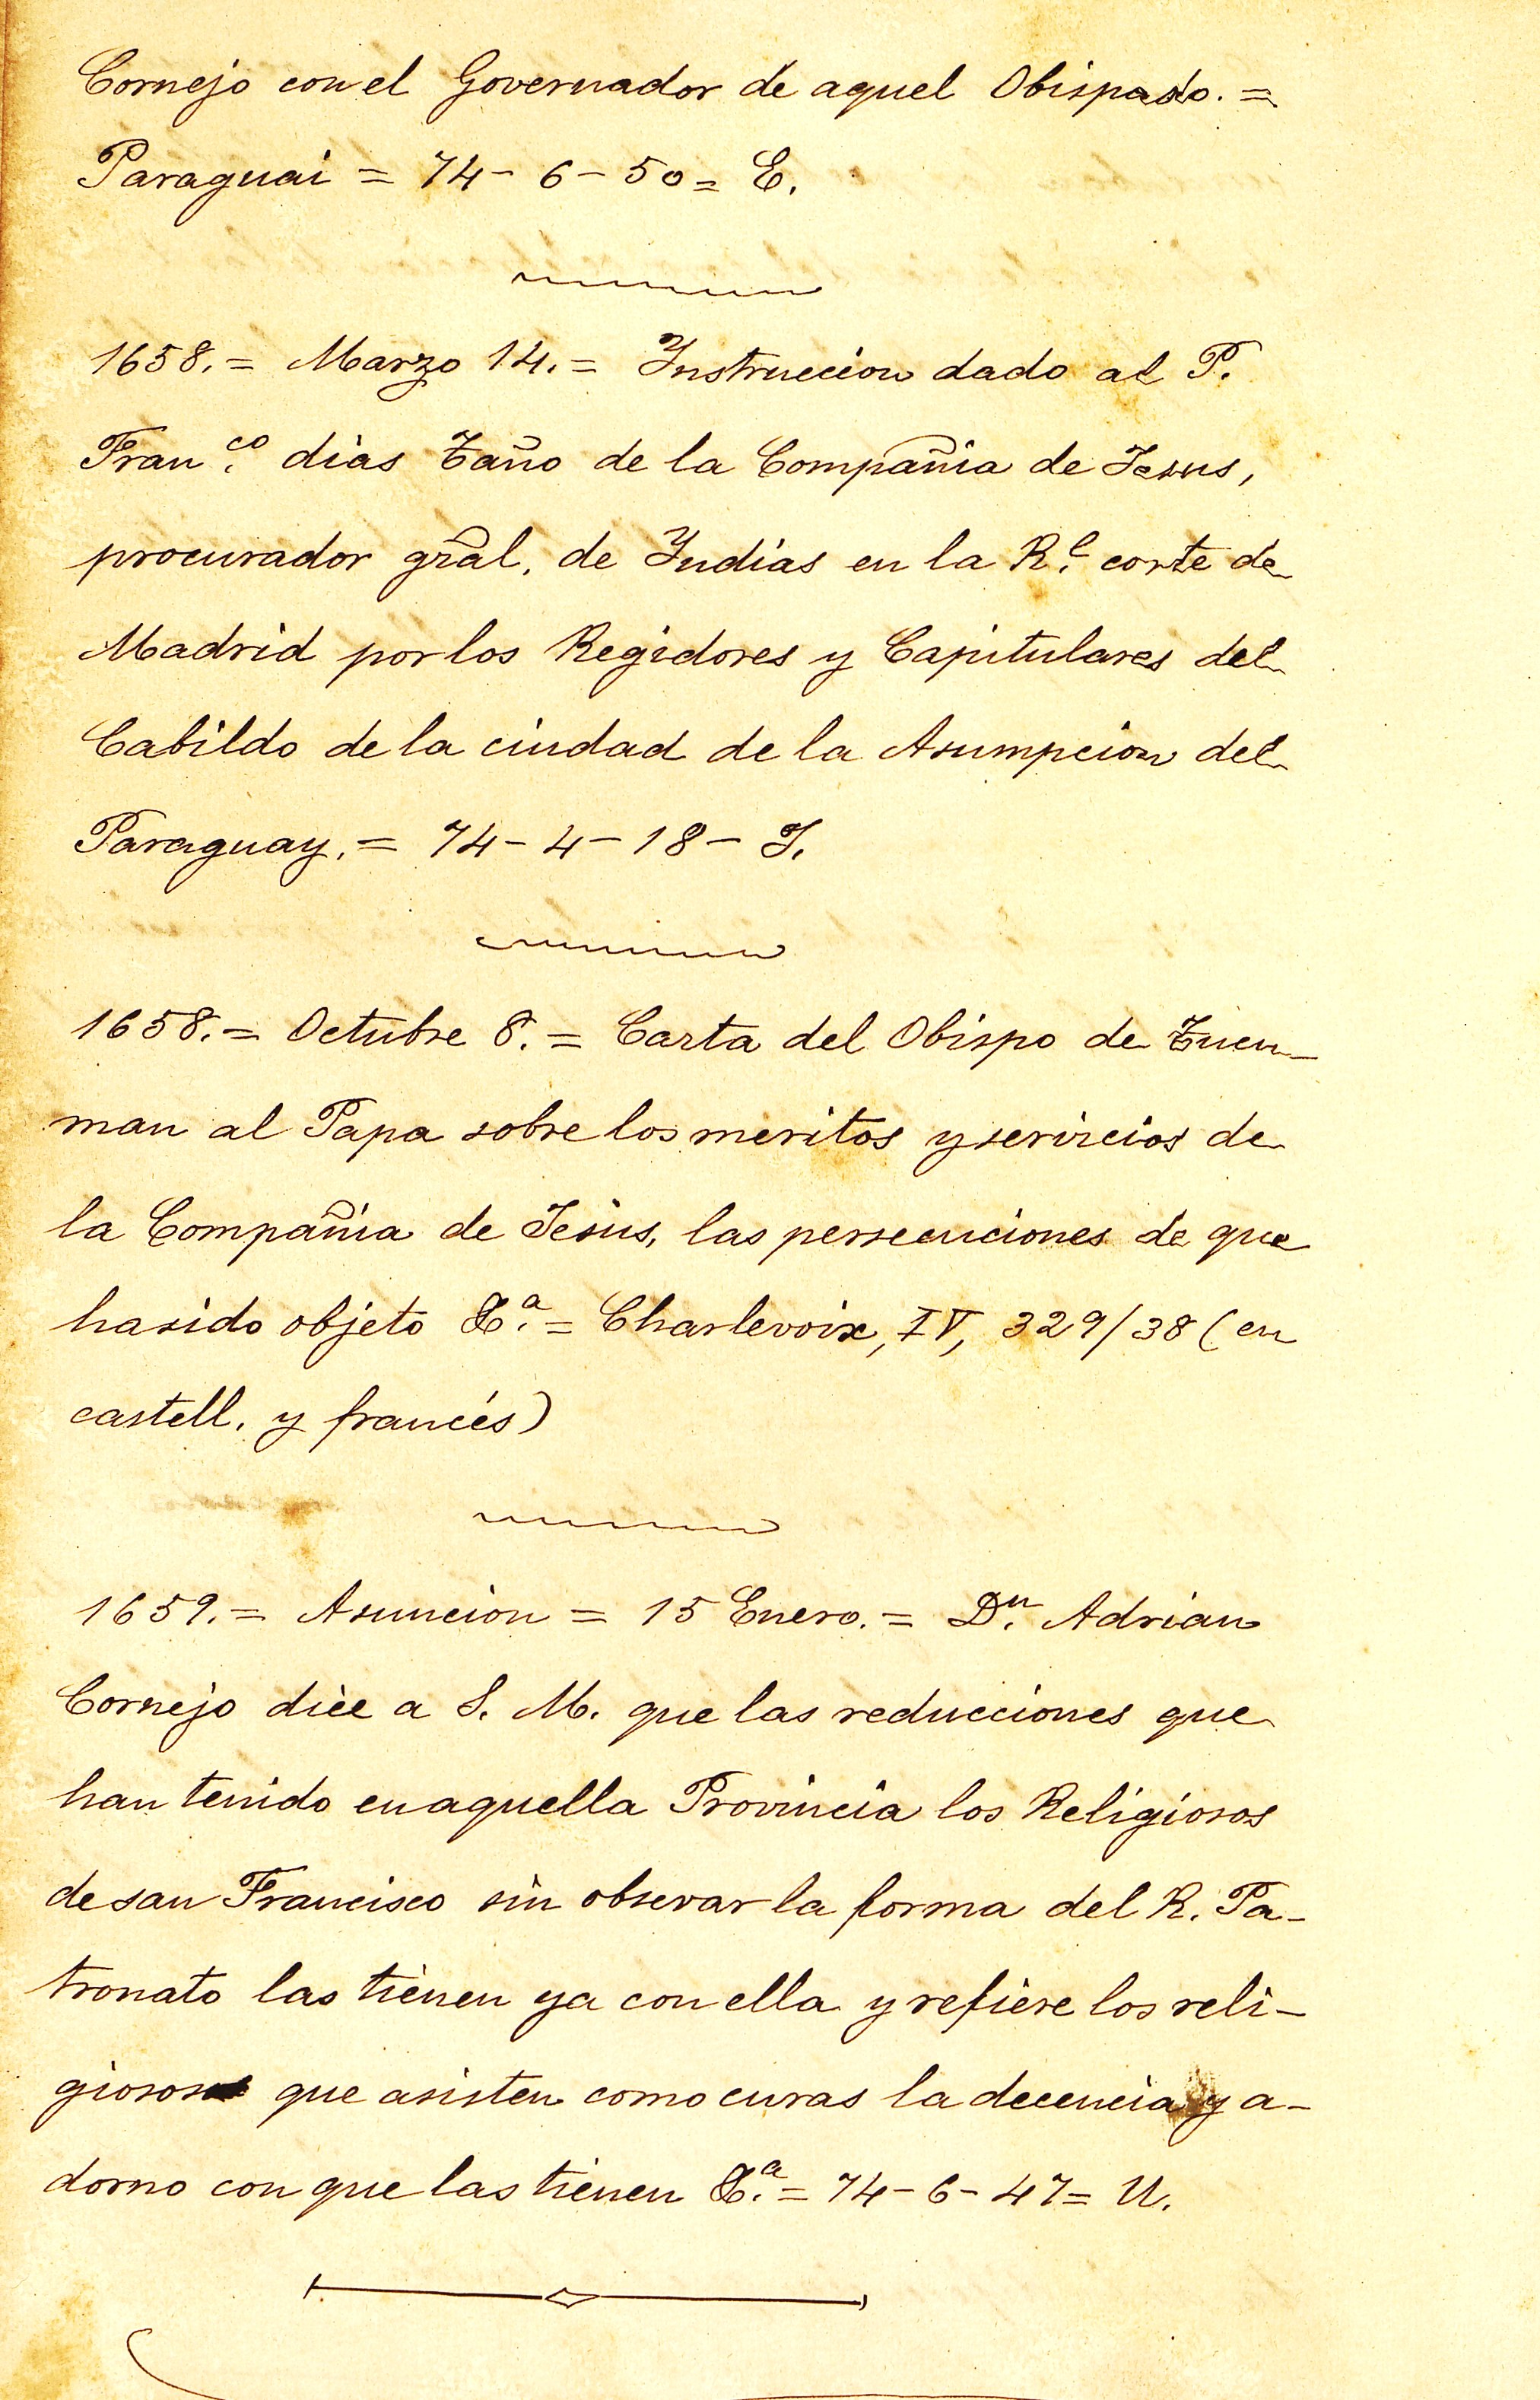 Cornejo con el Governador de aquel Obispado. =
Paraguai = 74 - 6 - 50 = E.
1658. = Marzo 14. = Instruccion dado al P.
Fran.co dias Taño de la Compañia de Jesus,
procurador gral. de Indias en la R.l corte de
Madrid por los Regidores y Capitulares del
Cabildo de la ciudad de la Asumpcion del
Paraguay. = 74 - 4 - 18 - J.
1658. = Octubre 8. = Carta del Obispo de Tucu-
man al Papa sobre los meritos y servicios de
la Compañia de Jesús, las persecuciones de que
ha sido objeto &.a = Charlevoix, IV, 329/38 (en
castell. y francés)
1659. = Asuncion = 15 Enero. = D.n Adrian
Cornejo dice a S. M. que las reducciones que
han tenido en aquella Provincia los Religiosos
de san Francisco sin obsevar la forma del R. Pa-
tronato las tienen ya con ella y refiere los reli-
giosos que asisten como curas la decencia y a-
dorno con que las tienen &.a = 74 - 6 - 47 = U.